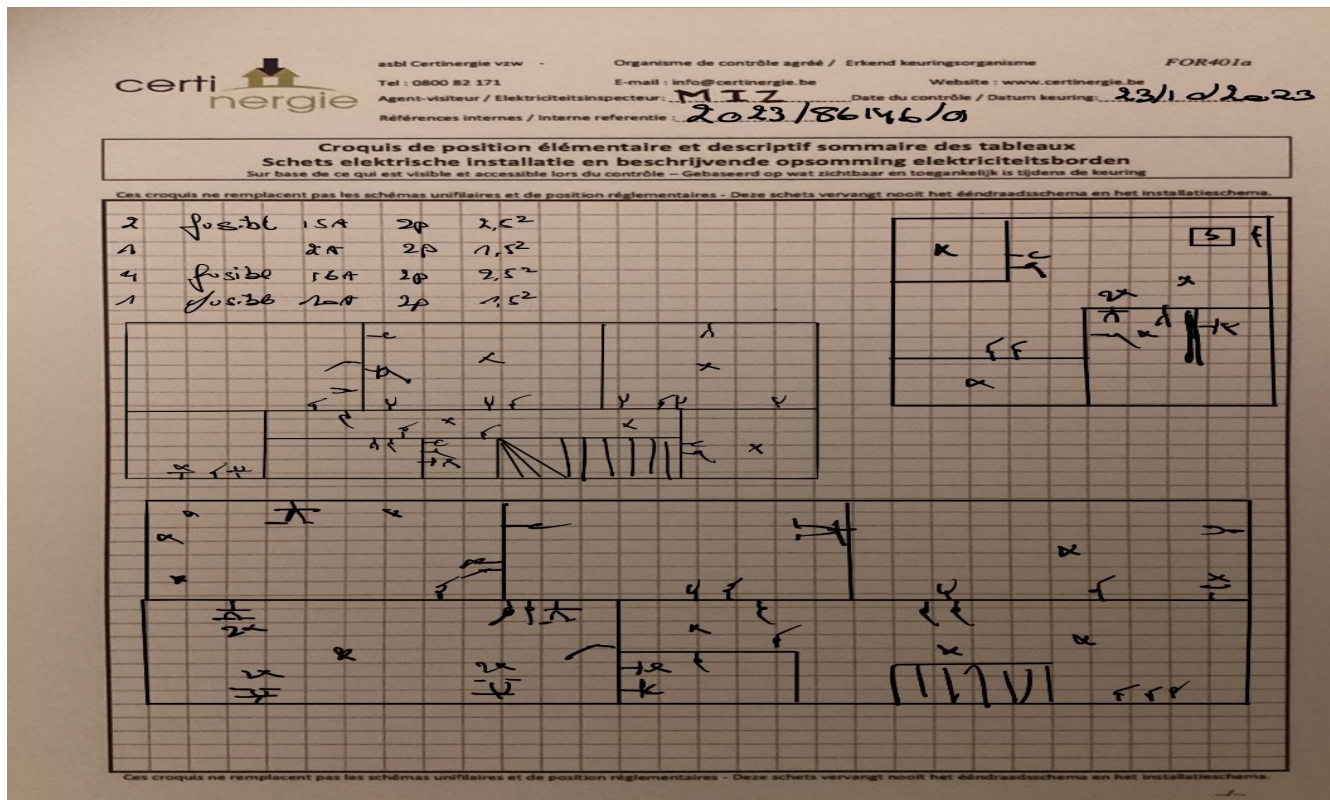 certinergie
asbl Certinergie vzw - Organisme de contrôle agréé / Erkend keuringsorganisme FOR401a
Tel : 0800 82 171 E-mail : info@certinergie.be Website : www.certinergie.be
Agent-visiteur / Elektriciteitsinspecteur: MIZ Date du contrôle / Datum keuring: 23/10/2023
Références internes / Interne referentie : 2023/86146/01
Croquis de position élémentaire et descriptif sommaire des tableaux
Schets elektrische installatie en beschrijvende opsomming elektriciteitsborden
Sur base de ce qui est visible et accessible lors du contrôle – Gebaseerd op wat zichtbaar en toegankelijk is tijdens de keuring
Ces croquis ne remplacent pas les schémas unifilaires et de position réglementaires - Deze schets vervangt nooit het ééndraadsschema en het installatieschema.
2 fusible 15A 2p 2,5²
1 2A 2p 1,5²
4 fusible 16A 2p 2,5²
1 fusible 10A 2p 1,5²
S
2x
2x
2x
2x
Ces croquis ne remplacent pas les schémas unifilaires et de position réglementaires - Deze schets vervangt nooit het ééndraadsschema en het installatieschema.